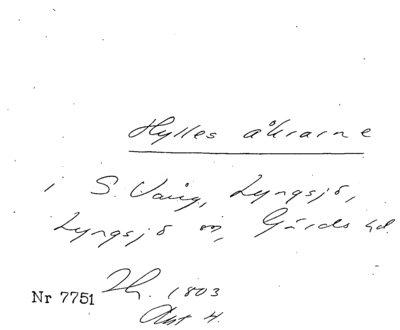 Hylles åkrarne
i S. Vang, Lyngsjö,
Lyngsjö sn, Gärds hd.
Lh. 1803
Akt 4.
Nr 7751